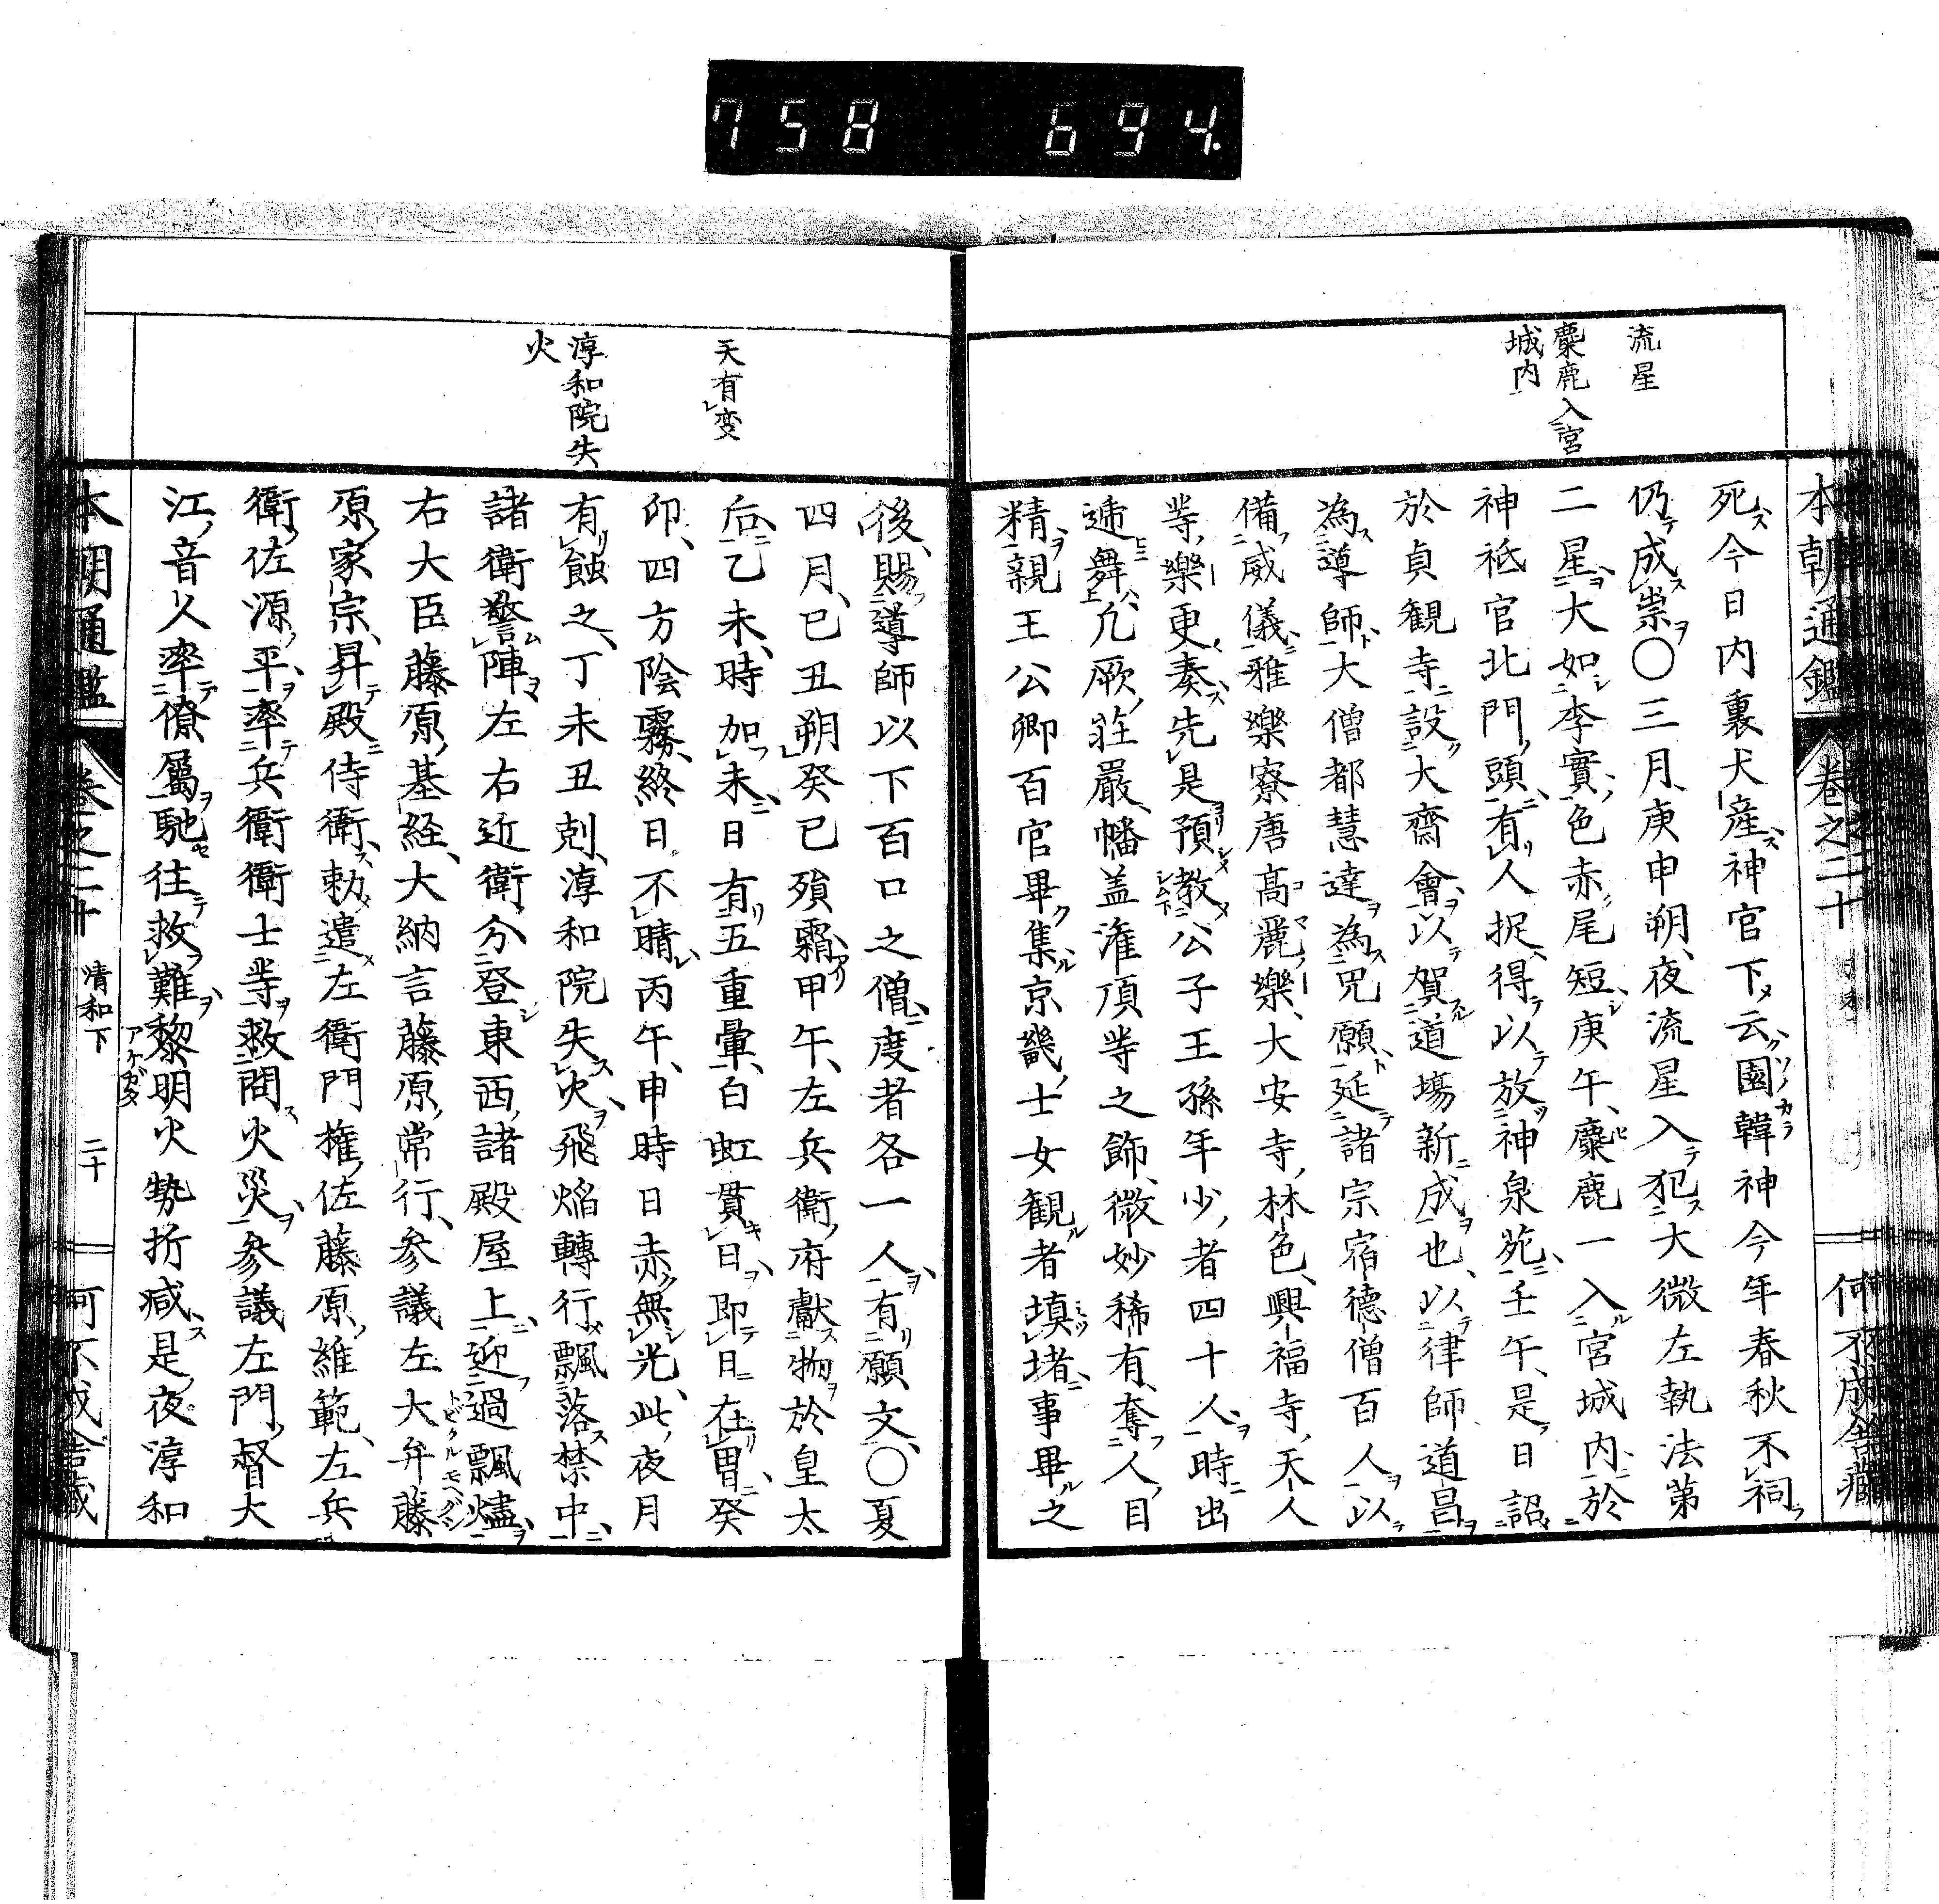 758 694.
流星
麋鹿入宮
城内
本朝通鑑 卷之二十 何不成舎藏
死今日内裏犬産神官下云園韓神今年春秋不祠
仍成祟〇三月庚申朔夜流星入犯大微左執法第
二星大如李實色赤尾短庚午麋鹿一入宮城内於
神祇官北門頭有人捉得以放神泉苑壬午是日詔
於貞観寺設大齋會以賀道場新成也以律師道昌
為導師大僧都慧達為咒願延諸宗宿德僧百人以
備威儀雅樂寮唐高麗樂大安寺林色興福寺天人
等樂更奏先是預教公子王孫年少者四十人時出
遞舞凢厥莊嚴幡盖潅頂等之飾微妙稀有奪人目
精親王公卿百官畢集京畿士女觀者填堵事畢之
天有変
淳和院失
火
後賜導師以下百口之僧度者各一人有願文〇夏
四月巳丑朔癸巳殞霜甲午左兵衛府獻物於皇太
后乙未時加未日有五重暈白虹貫日即日在胃癸
卯四方陰霧終日不晴丙午申時日赤無光此夜月
有蝕之丁未丑剋淳和院失火飛焔轉行飄落禁中
諸衛警陣左右近衛分登東西諸殿屋上迎過飄燼
右大臣藤原基経大納言藤原常行參議左大弁藤
原家宗昇殿侍衛勅遣左衛門権佐藤原維範左兵
衛佐源平率兵衛衛士等救問火災參議左門督大
江音人率僚屬馳往救難黎明火勢折减是夜淳和
本朝通鑑 卷之二十 清和下 二十 何不成舎藏